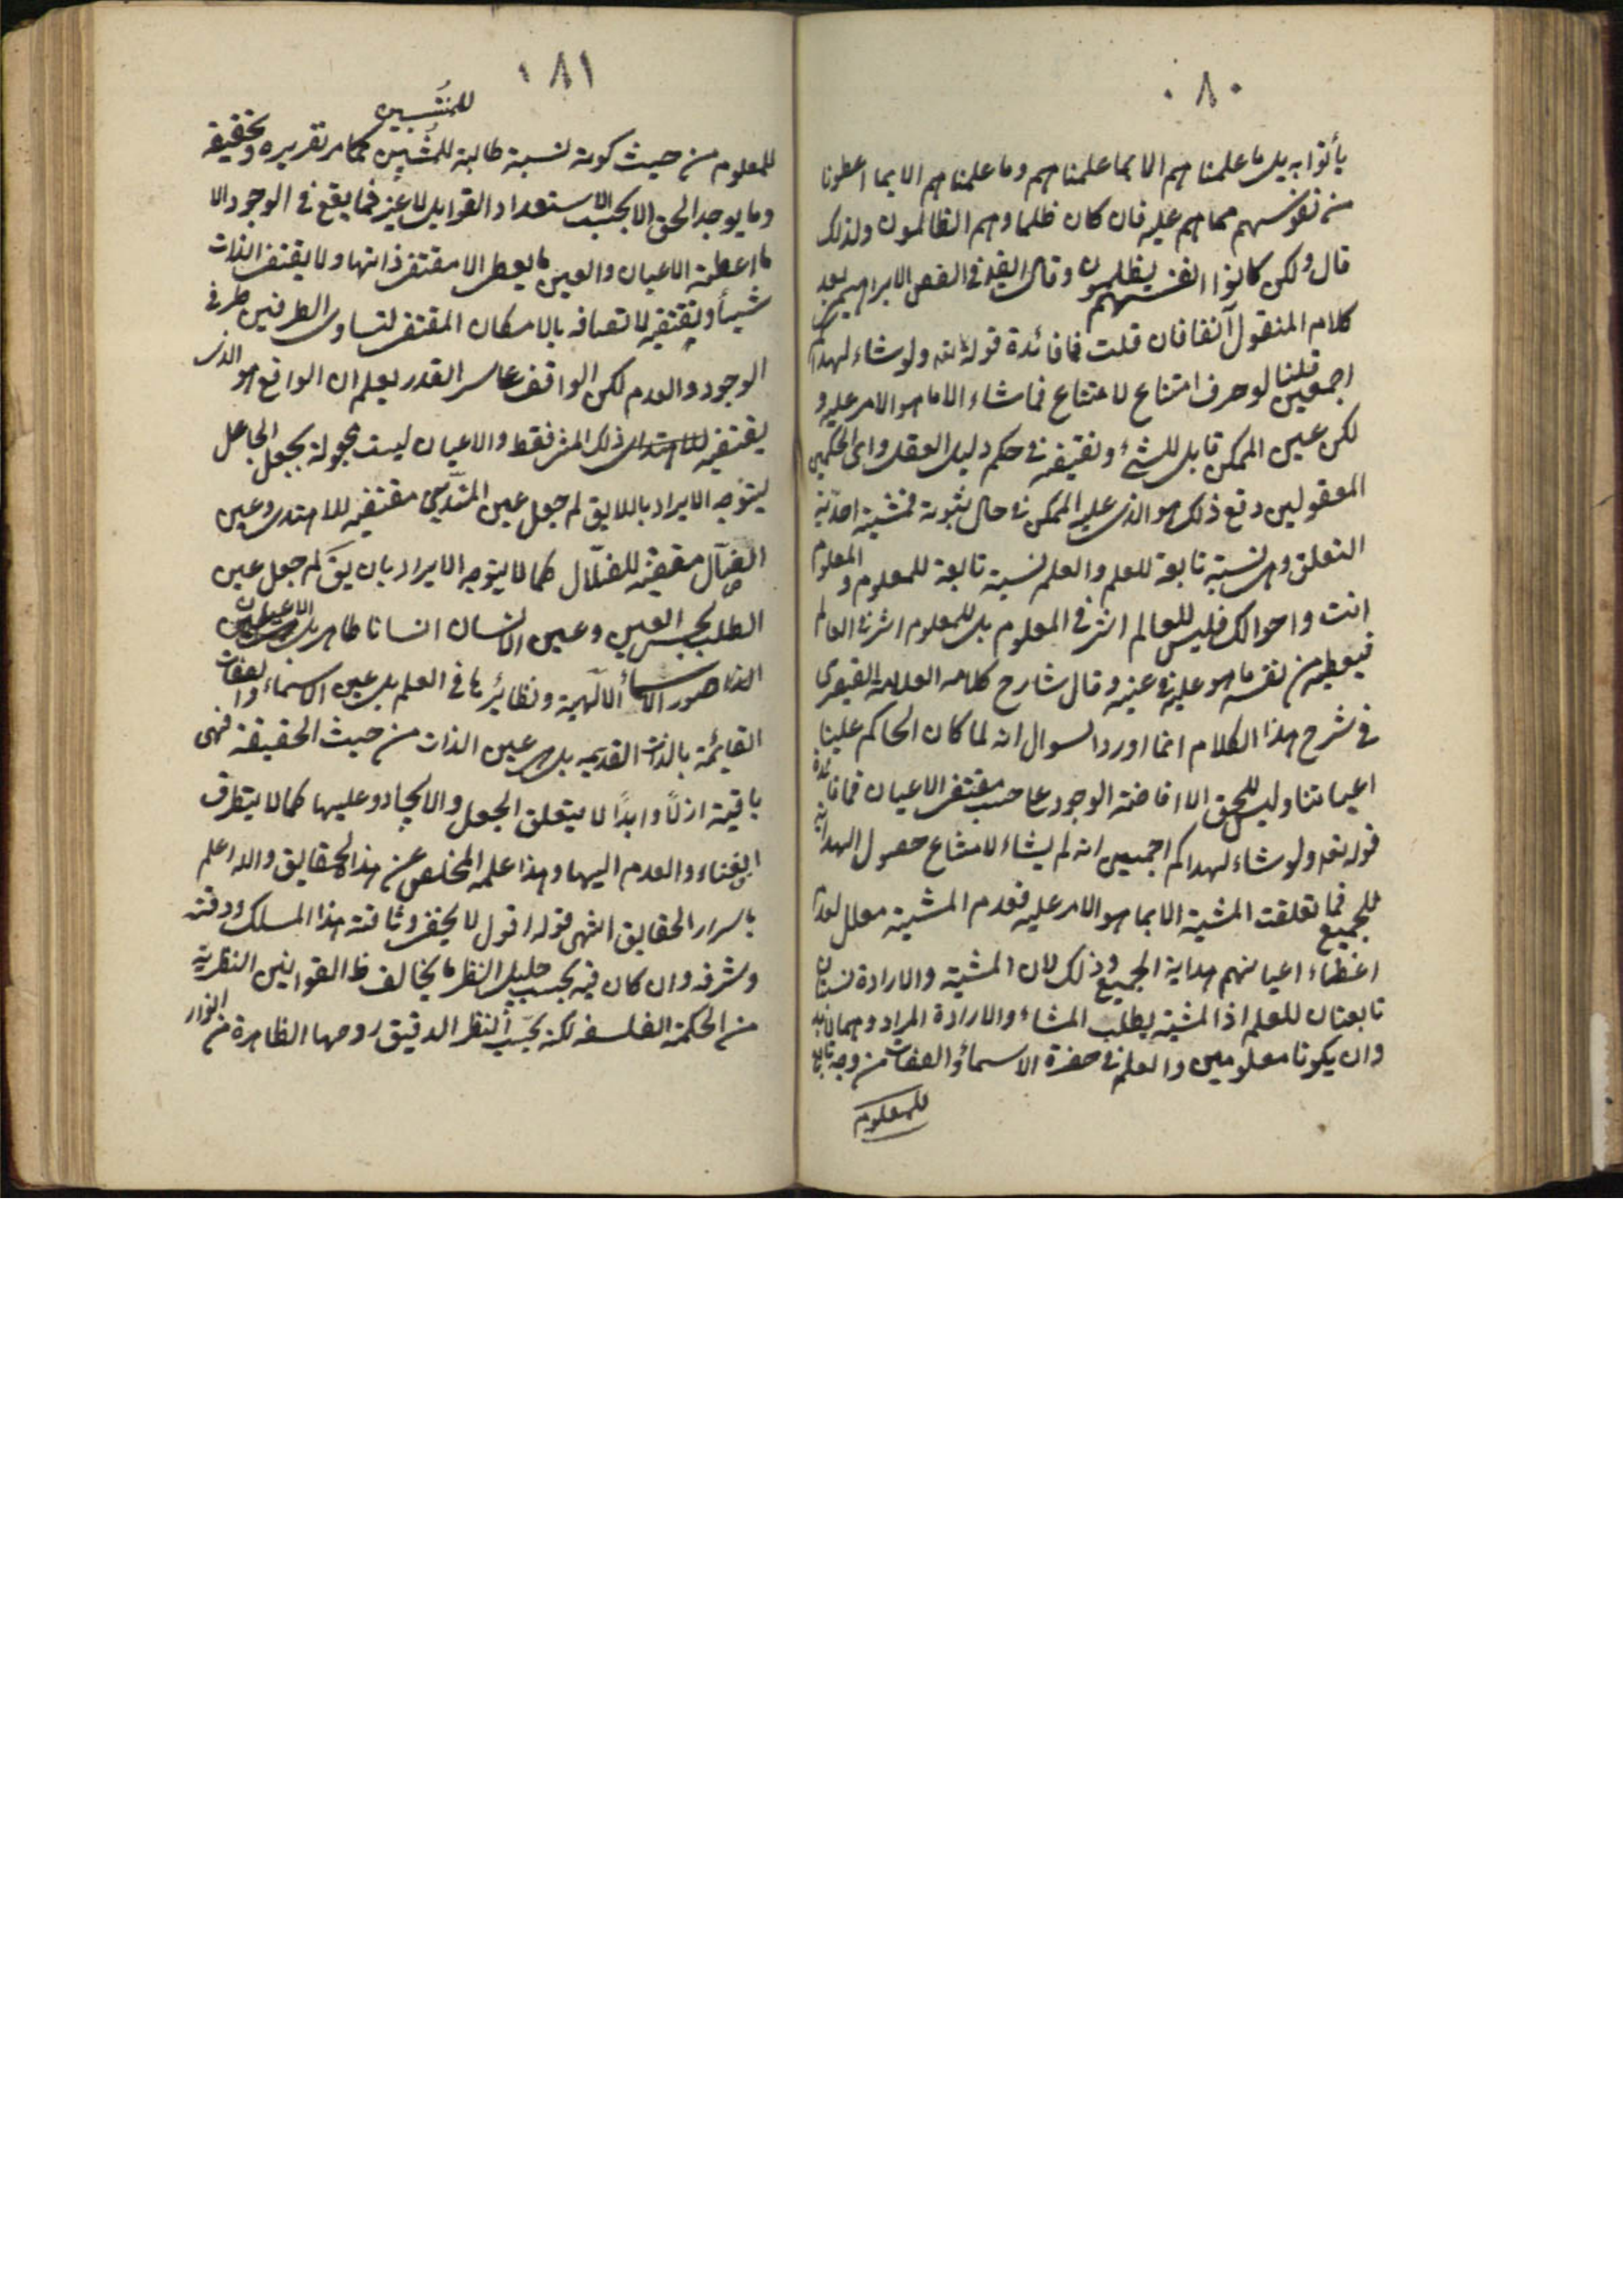 ٨٠
يأتوا به بل ما علمناهم الا بما علمناهم وما علمناهم الا بما اعطونا
من نفوسهم مما هم عليه فان كان ظلما وهم الظالمون ولذلك
قال ولكن كانوا انفسهم يظلمون وقال ايضا في الفص الابراهيمى بعد
كلام المنقول آنفا فان قلت فما فائدة قوله تعالى ولو شاء لهداكم
اجمعين قلنا لو حرف امتناع لامتناع فما شاء الا ما هو الامر عليه و
لكن عين الممكن قابل للشئ ونقيضه في حكم دليل العقل واى الحكمين
المعقولين وقع ذلك هو الذى عليه الممكن في حال ثبوته فمشيته احدية
التعلق وهى نسبة تابعة للعلم والعلم نسبة تابعة للمعلوم و المعلوم
انت واحوالك فليس للعالم اثر في المعلوم بل للمعلوم اثر في العالم
فيعطيه من نفسه ما هو عليه في عينه وقال شارح كلامه العلامة القيصرى
في شرح هذا الكلام انما اورد السوال انه لما كان الحاكم علينا
اعياننا وليس للحق الا افاضة الوجود على حسب مقتضى الاعيان فما فائدة
قوله تعالى ولو شاء لهداكم اجمعين انه لم يشاء لامتناع حصول الهداية
للجميع فما تعلقت المشية الا بما هو الامر عليه فعدم المشية معلل لعدم
اعطاء اعيانهم هداية الجميع وذلك لان المشية والارادة نسبتان
تابعتان للعلم اذ المشية يطلب المشاء والارادة المراد وهما لابد
وان يكونا معلومين والعلم في حضرة الاسماء والصفات من وجه تابع
للمعلوم
١٨١
للمنتسبين
للمعلوم من حيث كونه نسبة طالبة للمنتسبين كما مر تقريره وتحقيقه
وما يوجد الحق الا بحسب الاستعداد القوابل لا غير فما يقع في الوجود الا
ما اعطته الاعيان والعين ما يعطى الا مقتضى ذاتها ولا يقتضى الذات
شيأ ونقيضه لاتصافه بالامكان المقتضى لتساوى الطرفين طرفى
الوجود والعدم لكن الواقف على سر القدر يعلم ان الواقع هو الذى
يقتضيه ذلك الشئ فقط والاعيان ليست مجعولة بجعل الجاعل
ليتوجه الايراد باللايق لم جعل عين المهتدى مقتضية للاهتداء وعين
الضال مقتضية للضلال كما لا يتوجه الايراد بان يق لم جعل عين
الكلب نجس العين وعين الانسان انسانا طاهر بل الاعيان
صور الاسماء الآلهية ونظائرها في العلم بل عين الاسماء والصفات
القايمة بالذات القديمه بل هى عين الذات من حيث الحقيقة فهى
باقية ازلًا وابدًا لا يتعلق الجعل والايجاد وعليها كما لا يتطرق
الفناء والعدم اليها وهذا علمه المخلص عن هذا الحقايق والله اعلم
باسرار الحقايق انتهى قوله اقول لا يخفى وثاقته هذا المسلك ودقته
وشرفه وان كان فيه بحسب جليل النظر ما يخالف ظ القوانين النظرية
من الحكمة الفلسفه لكنه بحسب النظر الدقيق روحها الظاهرة من انوار